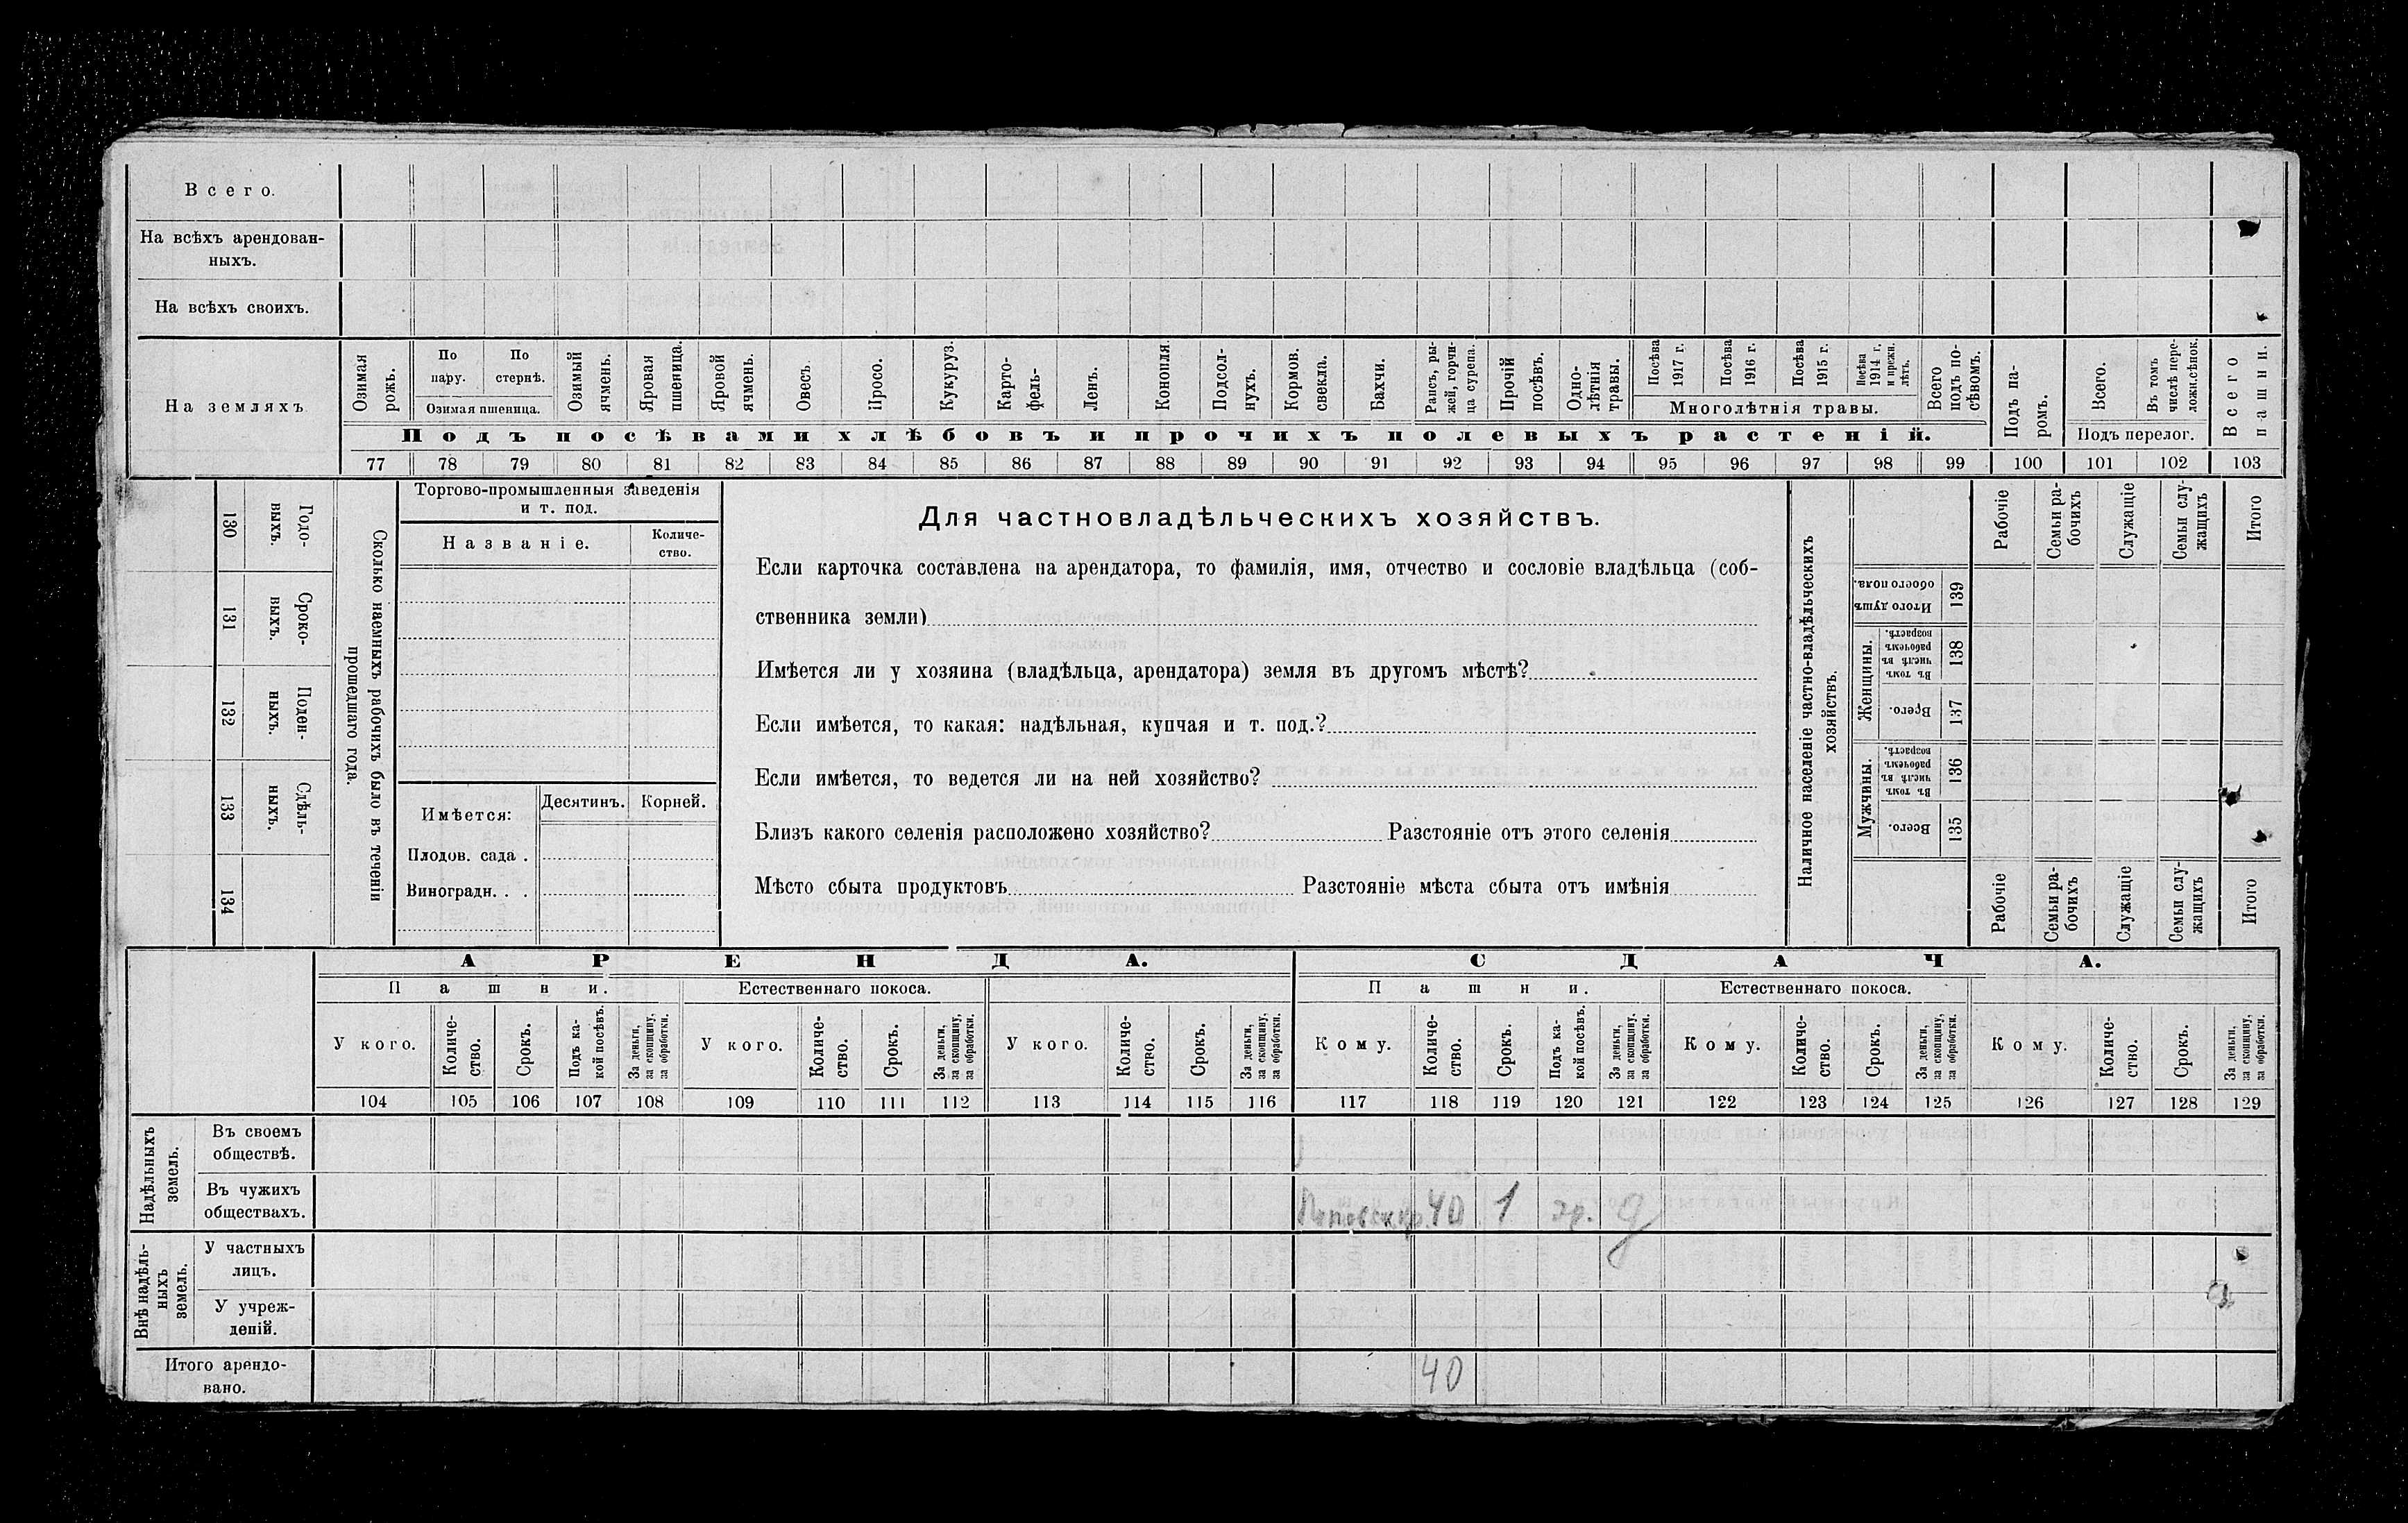 Всего.
На всѣхъ арендован-
ныхъ.
На всѣхъ своихъ.
На земляхъ
Озимая рожь.
По пару.
По стернѣ.
Озимая пшеница.
Озимый ячмень.
Яровая пшеница.
Яровой ячмень.
Овесъ.
Просо.
Кукуруз.
Карто-
фель.
Ленъ.
Конопля
Подсол-
нухъ.
Кормов. свекла.
Бахчи.
Рапсъ, ры-
жей, горчи-
ца сурепа.
Прочій посѣвъ.
Одно-
лѣтнія травы.
Посѣва 1917 г.
Посѣва 1916 г.
Посѣва 1915 г.
Посѣва 1914 г. и прежн. лѣтъ.
Многолѣтнія травы.
Всего подъ по-
сѣвомъ.
Подъ па-
ромъ.
Всего.
Въ томъ числѣ пере-
ложн.сѣнок.
Подъ перелог.
Всего пашни.
Подъ посѣвами хлѣбовъ и прочихъ полевыхъ растеній.
77 78 79 80 81 82 83 84 85 86 87 88 89 90 91 92 93 94 95 96 97 98 99 100 101 102 103
130 Годо-
выхъ.
131 Сроко-
выхъ.
132 Поден-
ныхъ.
133 Сдѣль-
ныхъ.
134
Сколько наемныхъ рабочихъ было въ теченіи
прошедшаго года.
Торгово-промышленныя заведенія
и т. под.
Названіе.
Количе-
ство.
Имѣется:
Десятинъ.
Корней.
Плодов. сада .
Виноградн. . .
Для частновладѣльческихъ хозяйствъ.
Если карточка составлена на арендатора, то фамилія, имя, отчество и сословіе владѣльца (соб-
ственника земли)
Имѣется ли у хозяина (владѣльца, арендатора) земля въ другомъ мѣстѣ?
Если имѣется, то какая: надѣльная, купчая и т. под.?
Если имѣется, то ведется ли на ней хозяйство?
Близъ какого селенія расположено хозяйство? Разстояніе отъ этого селенія
Мѣсто сбыта продуктовъ Разстояніе мѣста сбыта отъ имѣнія
Наличное населеніе частно-владѣльческихъ
хозяйствъ.
Рабочіе
Семьи ра-
бочихъ
Служащіе
Семьи слу-
жащихъ
Итого
Итого душъ обоего пола. 139
Женщины.
Въ томъ числѣ въ рабочемъ возрастѣ. 138
Всего. 137
Мужчины.
Въ томъ числѣ въ рабочемъ возрастѣ. 136
Всего. 135
Рабочіе
Семьи ра-
бочихъ
Служащіе
Семьи слу-
жащихъ
Итого
АРЕНДА.
СДАЧА.
Пашни.
Естественнаго покоса.
Пашни.
Естественнаго покоса.
У кого.
Количе-
ство.
Срокъ.
Подъ ка-
кой посѣвъ.
За деньги, за скопщину, за обработки.
У кого.
Количе-
ство.
Срокъ.
За деньги, за скопщину, за обработки.
У кого.
Количе-
ство.
Срокъ.
За деньги, за скопщину, за обработки.
Кому.
Количе-
ство.
Срокъ.
Подъ ка-
кой посѣвъ.
За деньги, за скопщину. за обработки.
Кому.
Количе-
ство.
Срокъ.
За деньги, за скопщину, за обработки.
Кому.
Количе-
ство.
Срокъ.
За деньги, за скопщину, за обработки.
104 105 106 107 108 109 110 111 112 113 114 115 116 117 118 119 120 121 122 123 124 125 126 127 128 129
Надѣльныхъ земель.
Въ своемъ
обществѣ.
Въ чужихъ
обществахъ.
40 1
Внѣ надѣль-
ныхъ земель.
У частныхъ
лицъ.
У учреж-
деній.
Итого арендо-
вано.
40